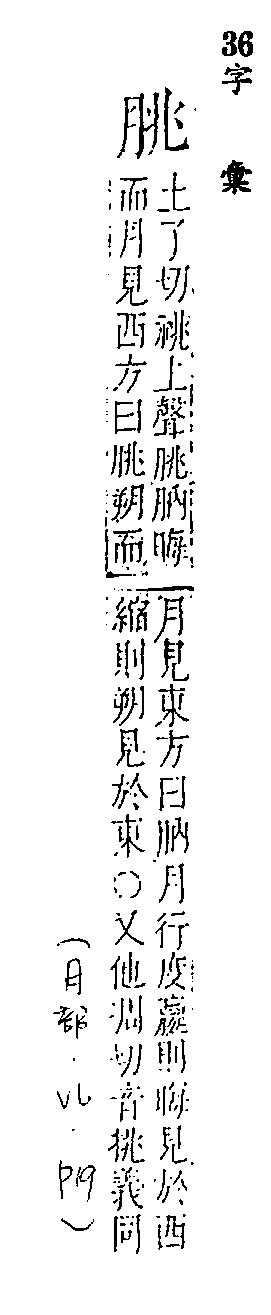 36字 彙
朓
土了切祧上聲朓朒晦
而月見西方曰朓朔而
月見東方曰朒月行度贏則晦見於西
縮則朔見於東○又他凋切音挑義同
(月部.P19)